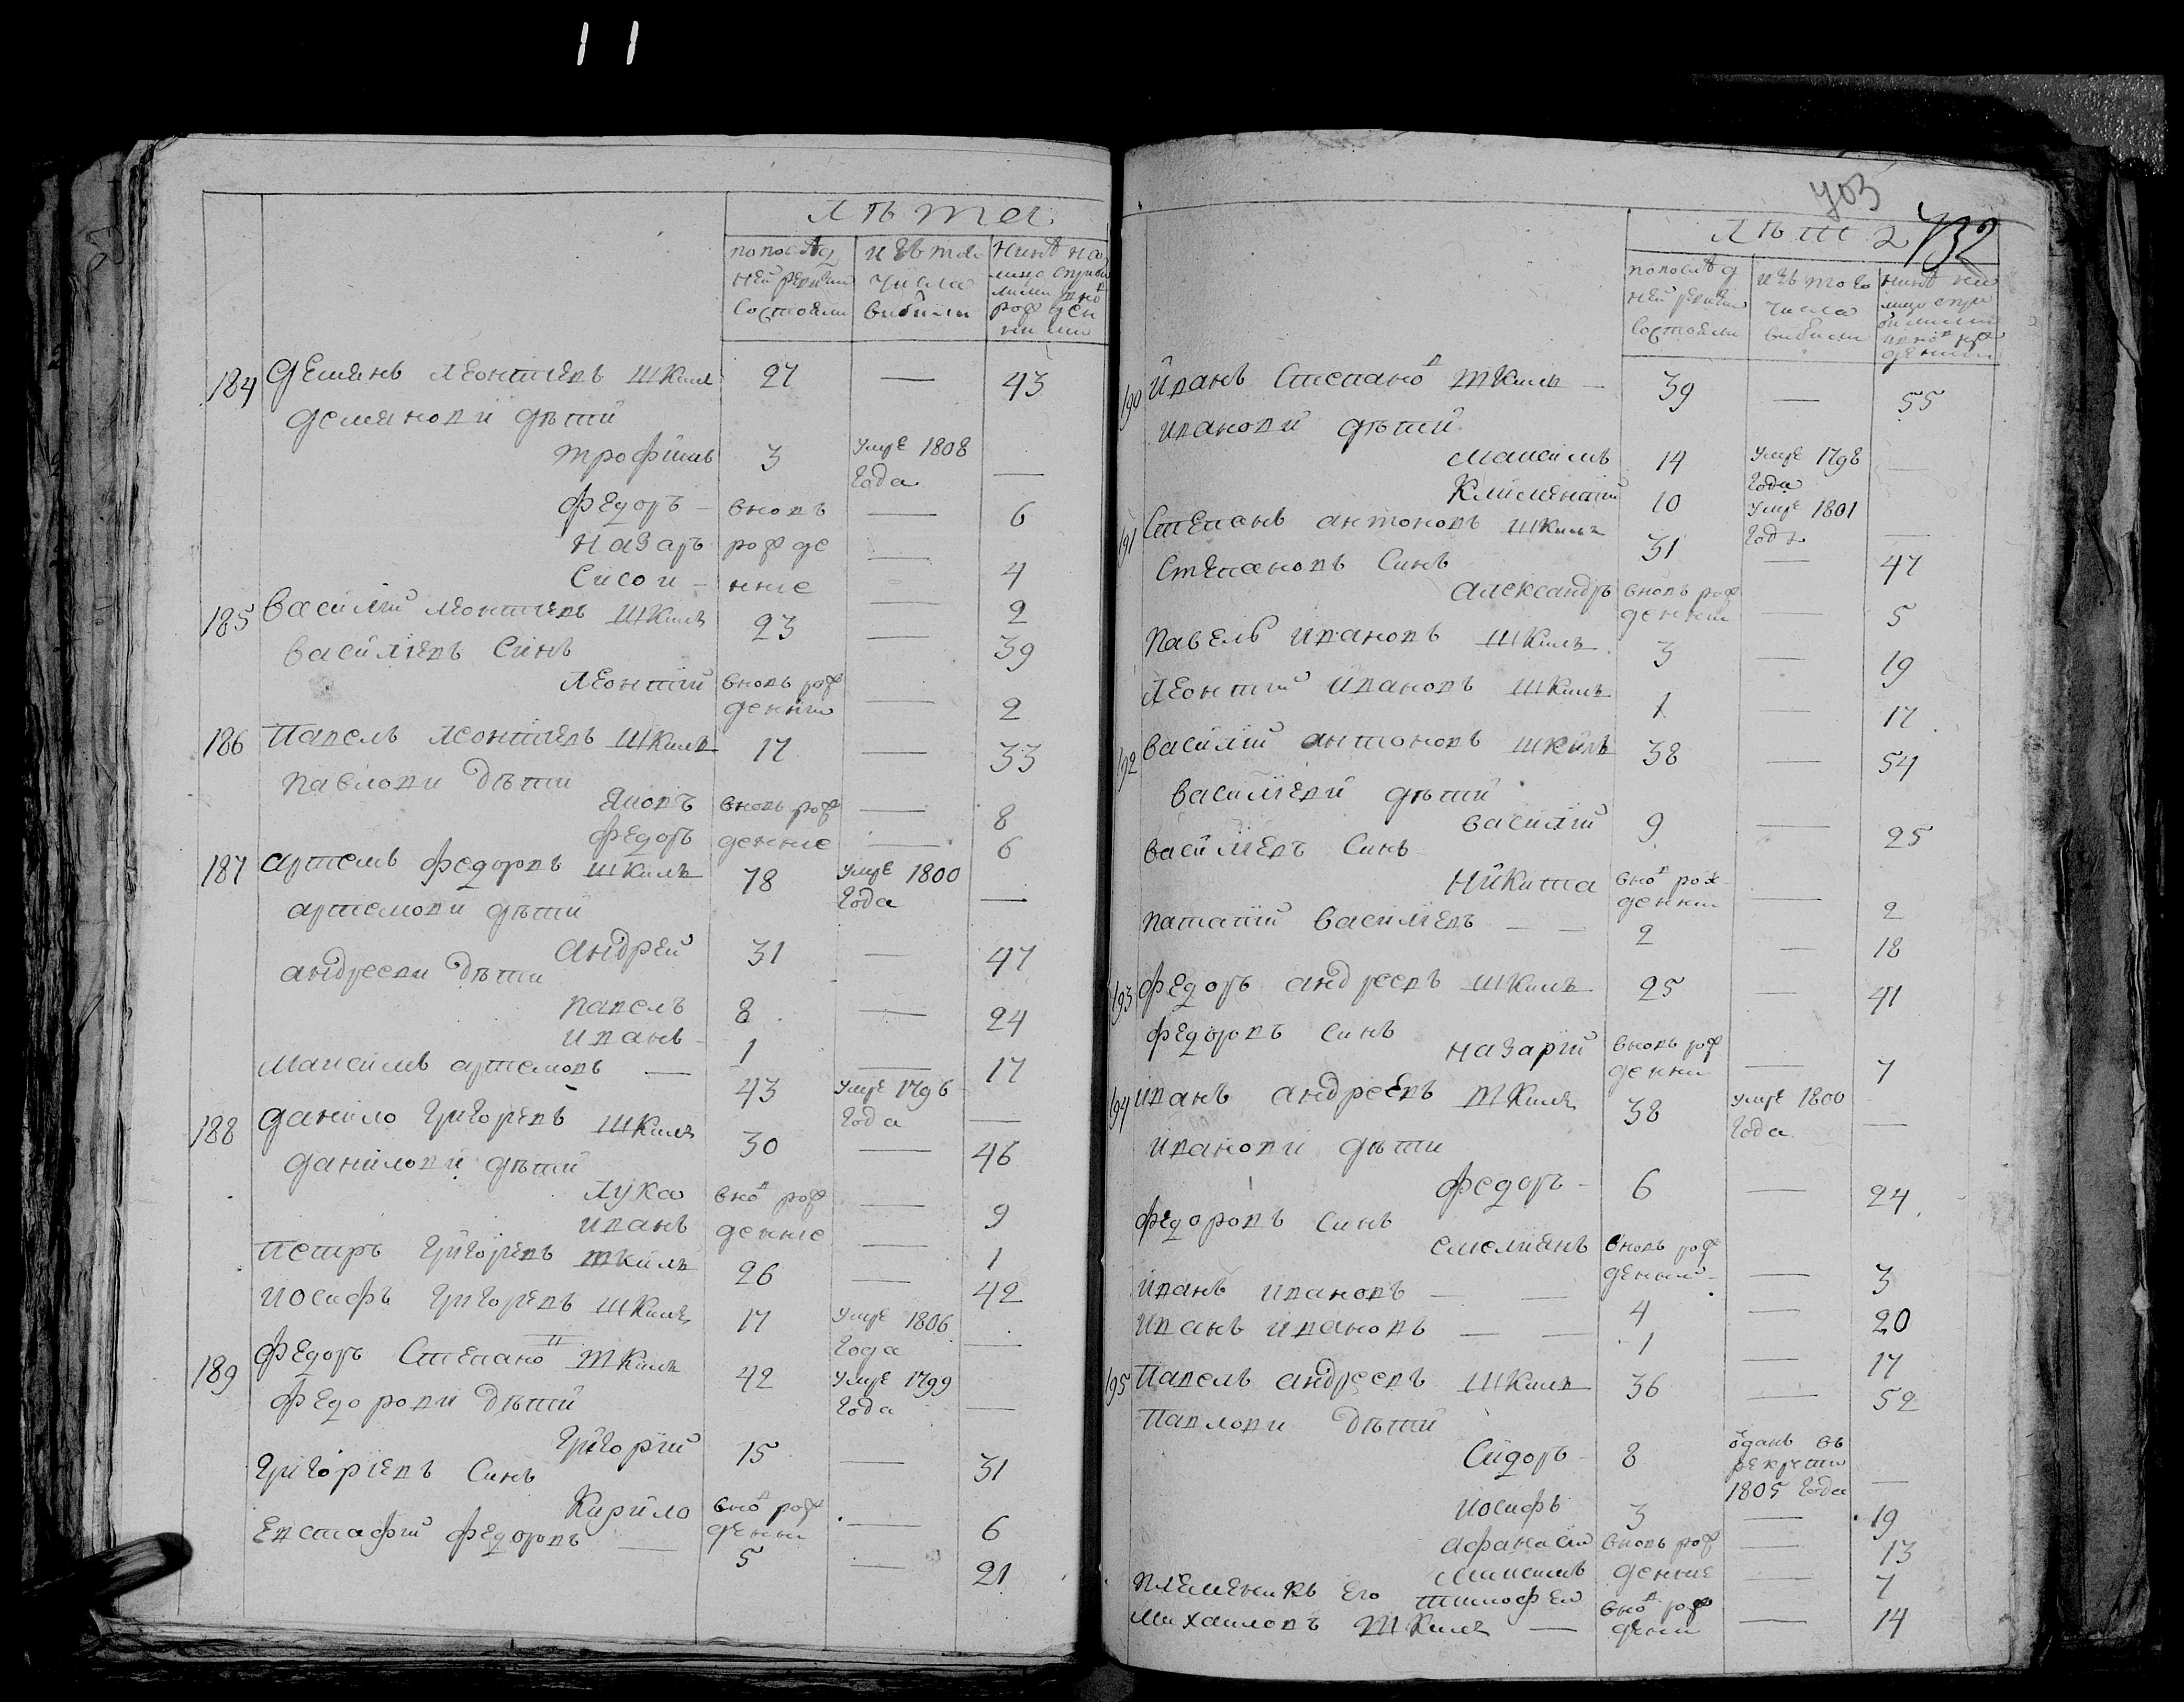 11
лѣта
попослѣд ней ревизіи состояли
изъ того числа выбыли
184 Демянъ Леонтіевъ Шкиль 27 — 43
Демянови дѣти
Трофимъ 3 Умре 1808 года —
Федоръ — вновь — 6
Назаръ рожде — 4
Сисои — нніе — 2
185 Василій Леонтіевъ Шкиль 23 — 39
Василіевъ Синъ
Леонтій вновь рожденній — 2
186 Павелъ Леонтіевъ Шкиль 17 — 33
Павлови Дѣти
Яковъ вновь рож — 8
Федоръ денніе — 6
187 Артемъ Федоровъ Шкиль 78 Умре 1800 года —
Артемови дѣти
Андрей 31 — 47
Андреєви Дѣти
Павелъ 8 — 24
Иванъ 1 — 17
Максимъ Артемовъ — 43 Умре 1796 года —
188 Данило Григоріевъ Шкиль 30 — 46
Данилови дѣти
Лука вновъ рож — 9
Иванъ денніе — 1
Петръ Григоріевъ Шкиль 26 — 42
Иосифъ Григоріевъ Шкиль 17 Умре 1806 года —
189 Федоръ Степановъ Шкиль 42 Умре 1799 года —
Федорови Дѣти
Григорій 15 — 31
Григоріевъ Синъ
Кирило вновъ рожденни — 6
Евстафій Федоровъ — 5 — 21
703
732
лѣта
попослѣд ней ревизіи состояли
изъ того числа выбыли
190 Иванъ Степановъ Шкиль — 39 — 55
Иванови дѣти
Максимъ 14 Умре 1798 года —
Климентій 10 Умре 1801 года —
191 Степанъ Антоновъ Шкиль 31 — 47
Степановъ Синъ
Александръ вновь рожденни — 5
Павелъ Ивановъ Шкиль 3 — 19
Леонтій Ивановъ Шкиль 1 — 17
192 Василій Антоновъ Шкиль 38 — 54
Василіеви дѣти
Василій 9 — 25
Василіевъ Синъ
Никита вновъ рожденни — 2
Патапій Василіевъ — — 2 — 18
193 Федоръ Андреевъ Шкиль 25 — 41
Федоровъ Синъ
Назарій вновь рожденни — 7
194 Иванъ Андреевъ Шкиль 38 Умре 1800 года —
Иванови дѣти
Федоръ — 6 — 24
Федоровъ Синъ
Емеліянъ вновь рожденни — 3
Иванъ Ивановъ — — 4 — 20
Иванъ Ивановъ — — 1 — 17
195 Павелъ Андреевъ Шкиль 36 — 52
Павлови Дѣти
Сидоръ — 8 ѿданъ въ рекрути 1805 года —
Иосифъ 3 — 19
Афанасій вновь рож — 13
Максимъ денніе — 7
Племеникъ Его Тимофей вновъ рож
Михаиловъ Шкиль — денни — 14